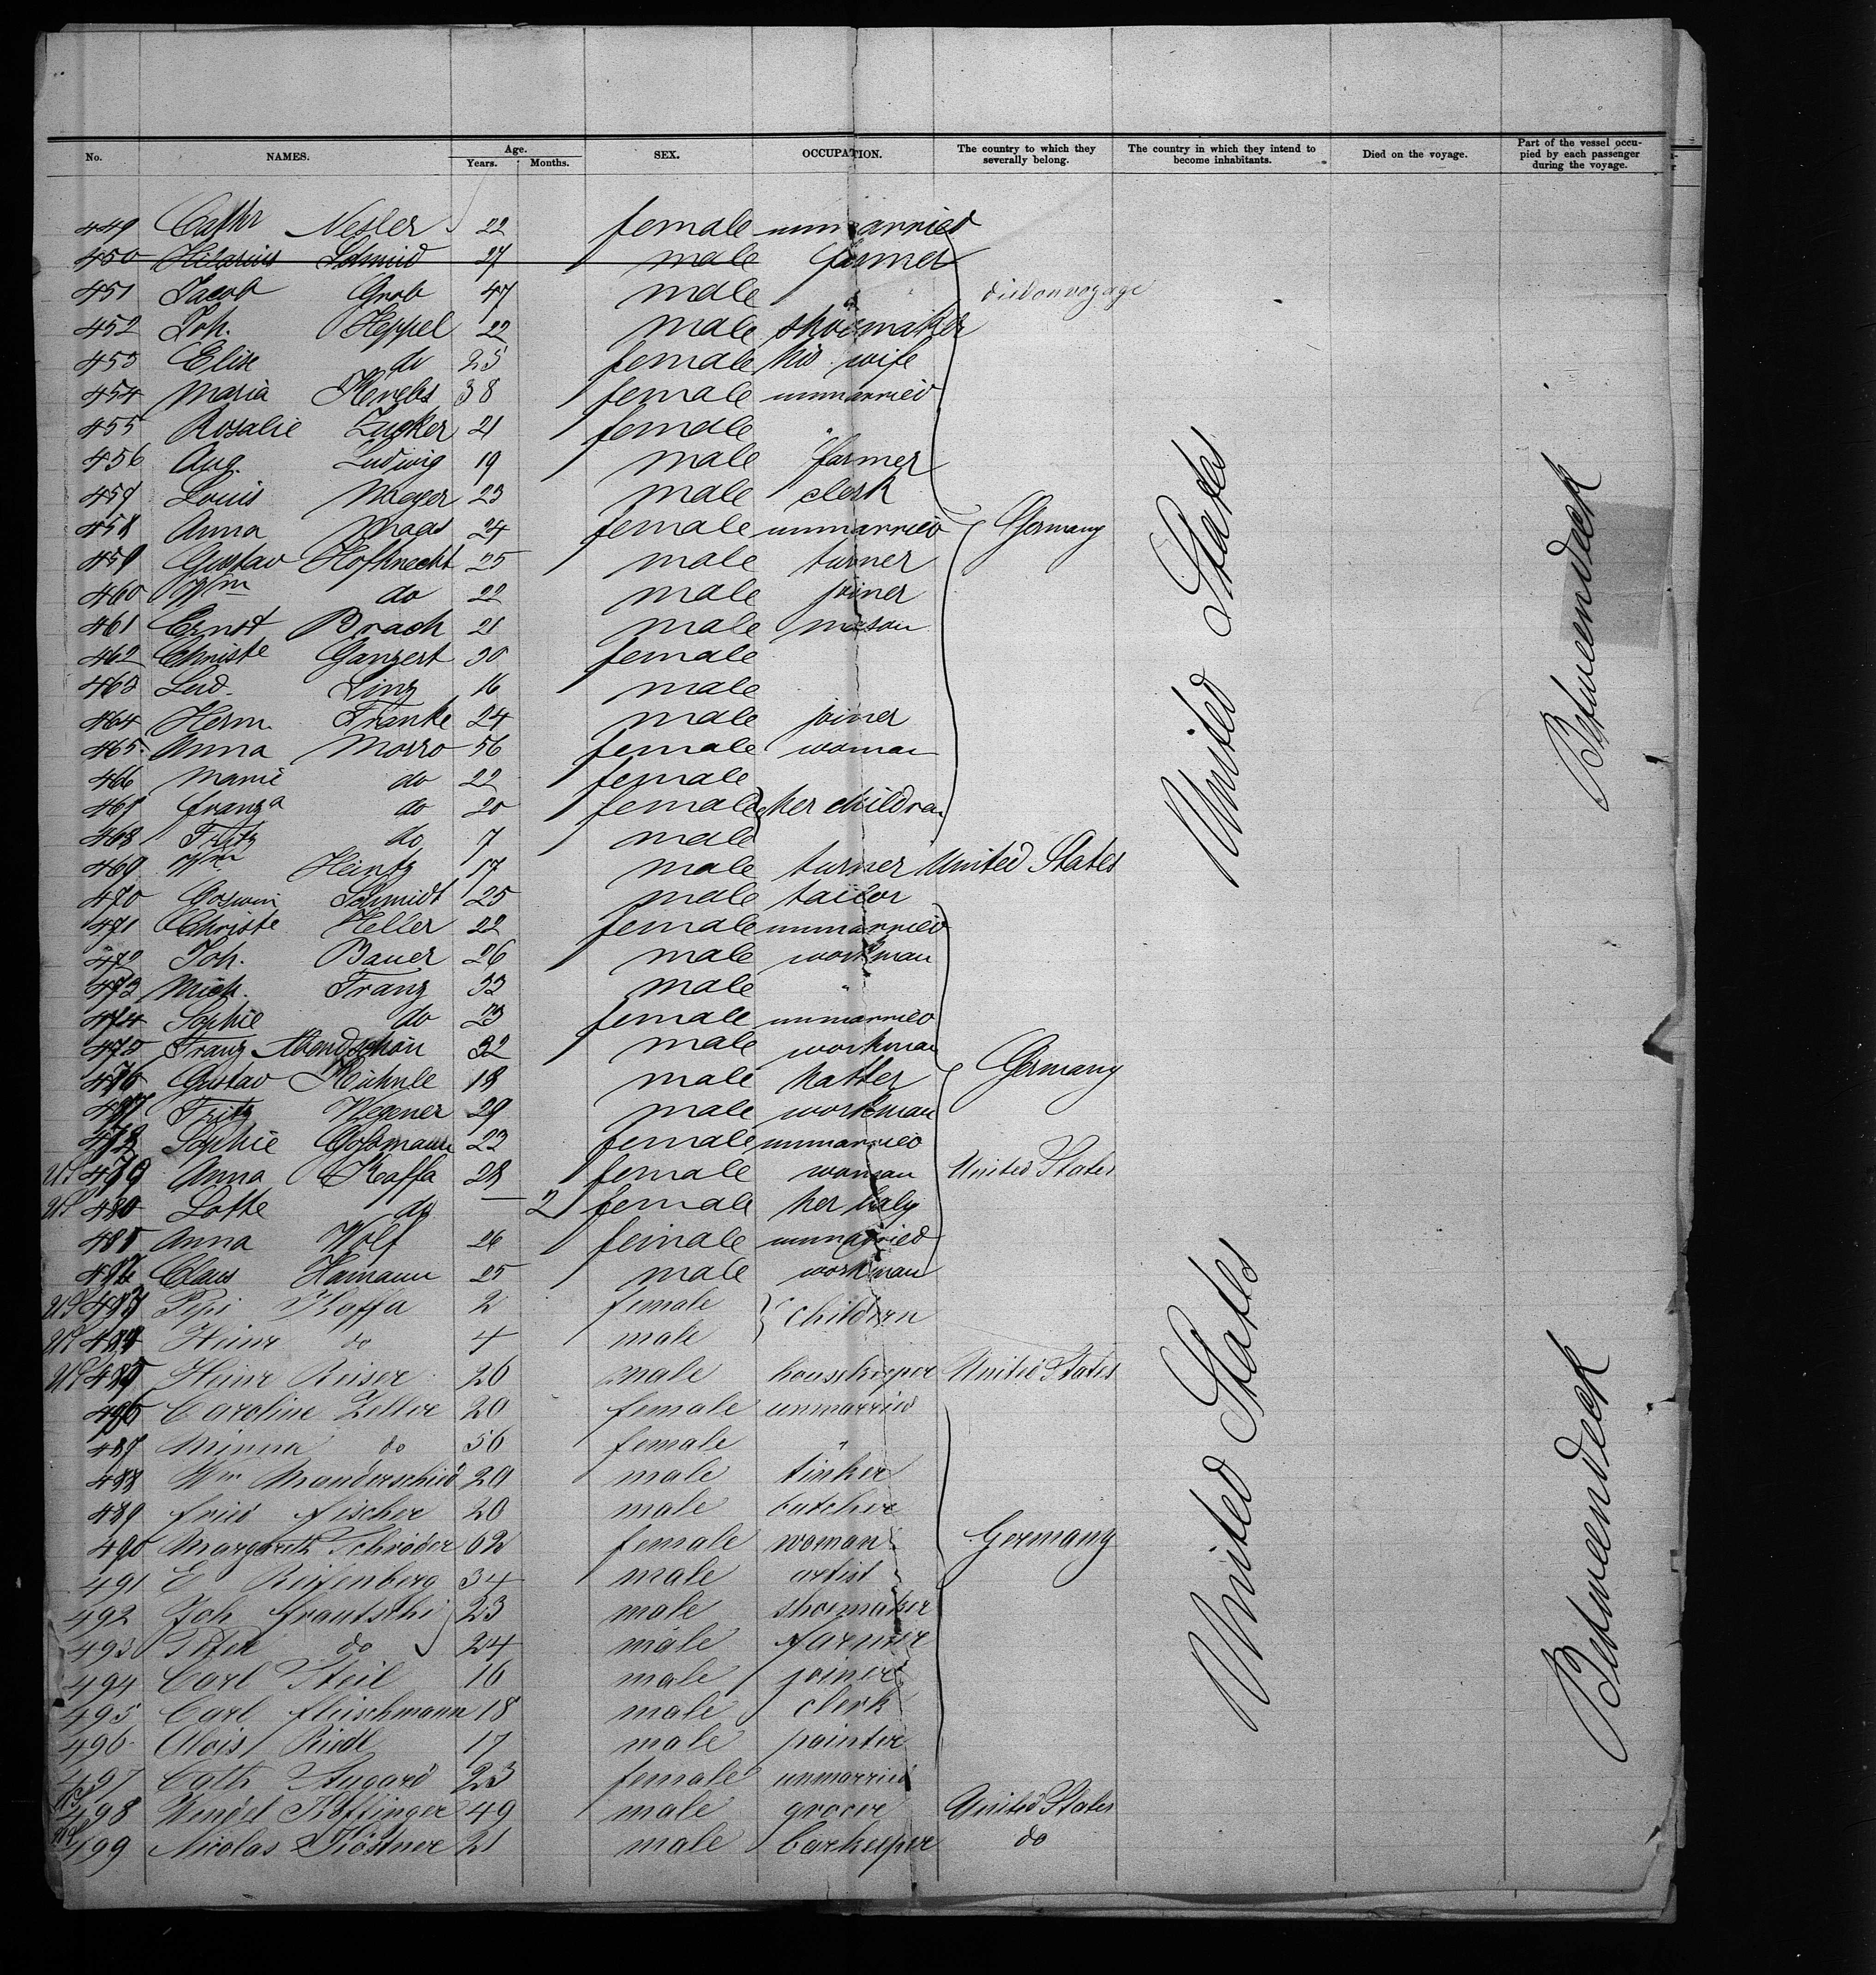 No. NAMES. Age. Years. Months. SEX. OCCUPATION. The country to which they severally belong. The country in which they intend to become inhabitants. Died on the voyage. Part of the vessel occupied by each passenger during the voyage.
449 Cathr Nesler 22 female unmarried
450 Hilarius Schmid 27 male farmer
451 Jacob Grob 47 male " died on voyage
452 Joh. Heppel 22 male shoemaker
453 Elise do 25 female his wife
454 Maria 38 female unmarried
455 Rosalie Zucker 21 female "
456 Aug. Ludwig 19 male farmer
457 Louis Meyer 23 male clerk
458 Anna Maas 24 female unmarried Germany
459 Gustav Hofknecht 25 male turner
460 Wm do 22 male joiner
461 Ernst Brach 21 male mason
462 Christe Ganzert 30 female
463 Lud. Linz 16 male
464 Herm. Franke 24 male joiner
465 Anna Morro 56 female woman
466 Marie do 22 female
467 Franza do 20 female her children
468 Fritz do 7 male
469 Wm Heintz 17 male turner United States
470 Goswin Schmidt 25 male tailor
471 Christe Heller 22 female unmarried
472 Joh. Bauer 26 male workman
473 Mich. Franz 33 male "
474 Sophie do 23 female unmarried
475 Franz Abendschön 32 male workman
476 Gustav Kühnle 18 male hatter Germany
477 Fritz Wegener 29 male workman
478 Sophie Gossmann 23 female unmarried
US 479 Anna Kaffa 28 female woman United States
US 480 Lotte do — 2 female her baby
481 Anna Wolf 26 female unmarried
482 Claus Hamann 25 male workman
US 483 Pepi Kaffa 2 female children
US 484 Heinr do 4 male
US 485 Heinr Reiser 26 male housekeeper United States
486 Caroline Zeller 20 female unmarried
487 Minna do 56 female "
488 Wm Manderscheid 20 male tinker
489 Fried Fischer 20 male butcher
490 Margareth Schröder 62 female woman Germany
491 E Reifenberg 34 male artist
492 Joh Frautschi 23 male shoemaker
493 Peter do 24 male farmer
494 Carl Steil 16 male joiner
495 Carl Fleischmann 18 male clerk
496 Alois Riedl 17 male painter
497 Cath Nygard 23 female unmarried
US 498 Wendel 49 male grocer United States
US 499 Nicolas Köstner 21 male barkeeper do
United States
Betweendeck
United States
Betweendeck